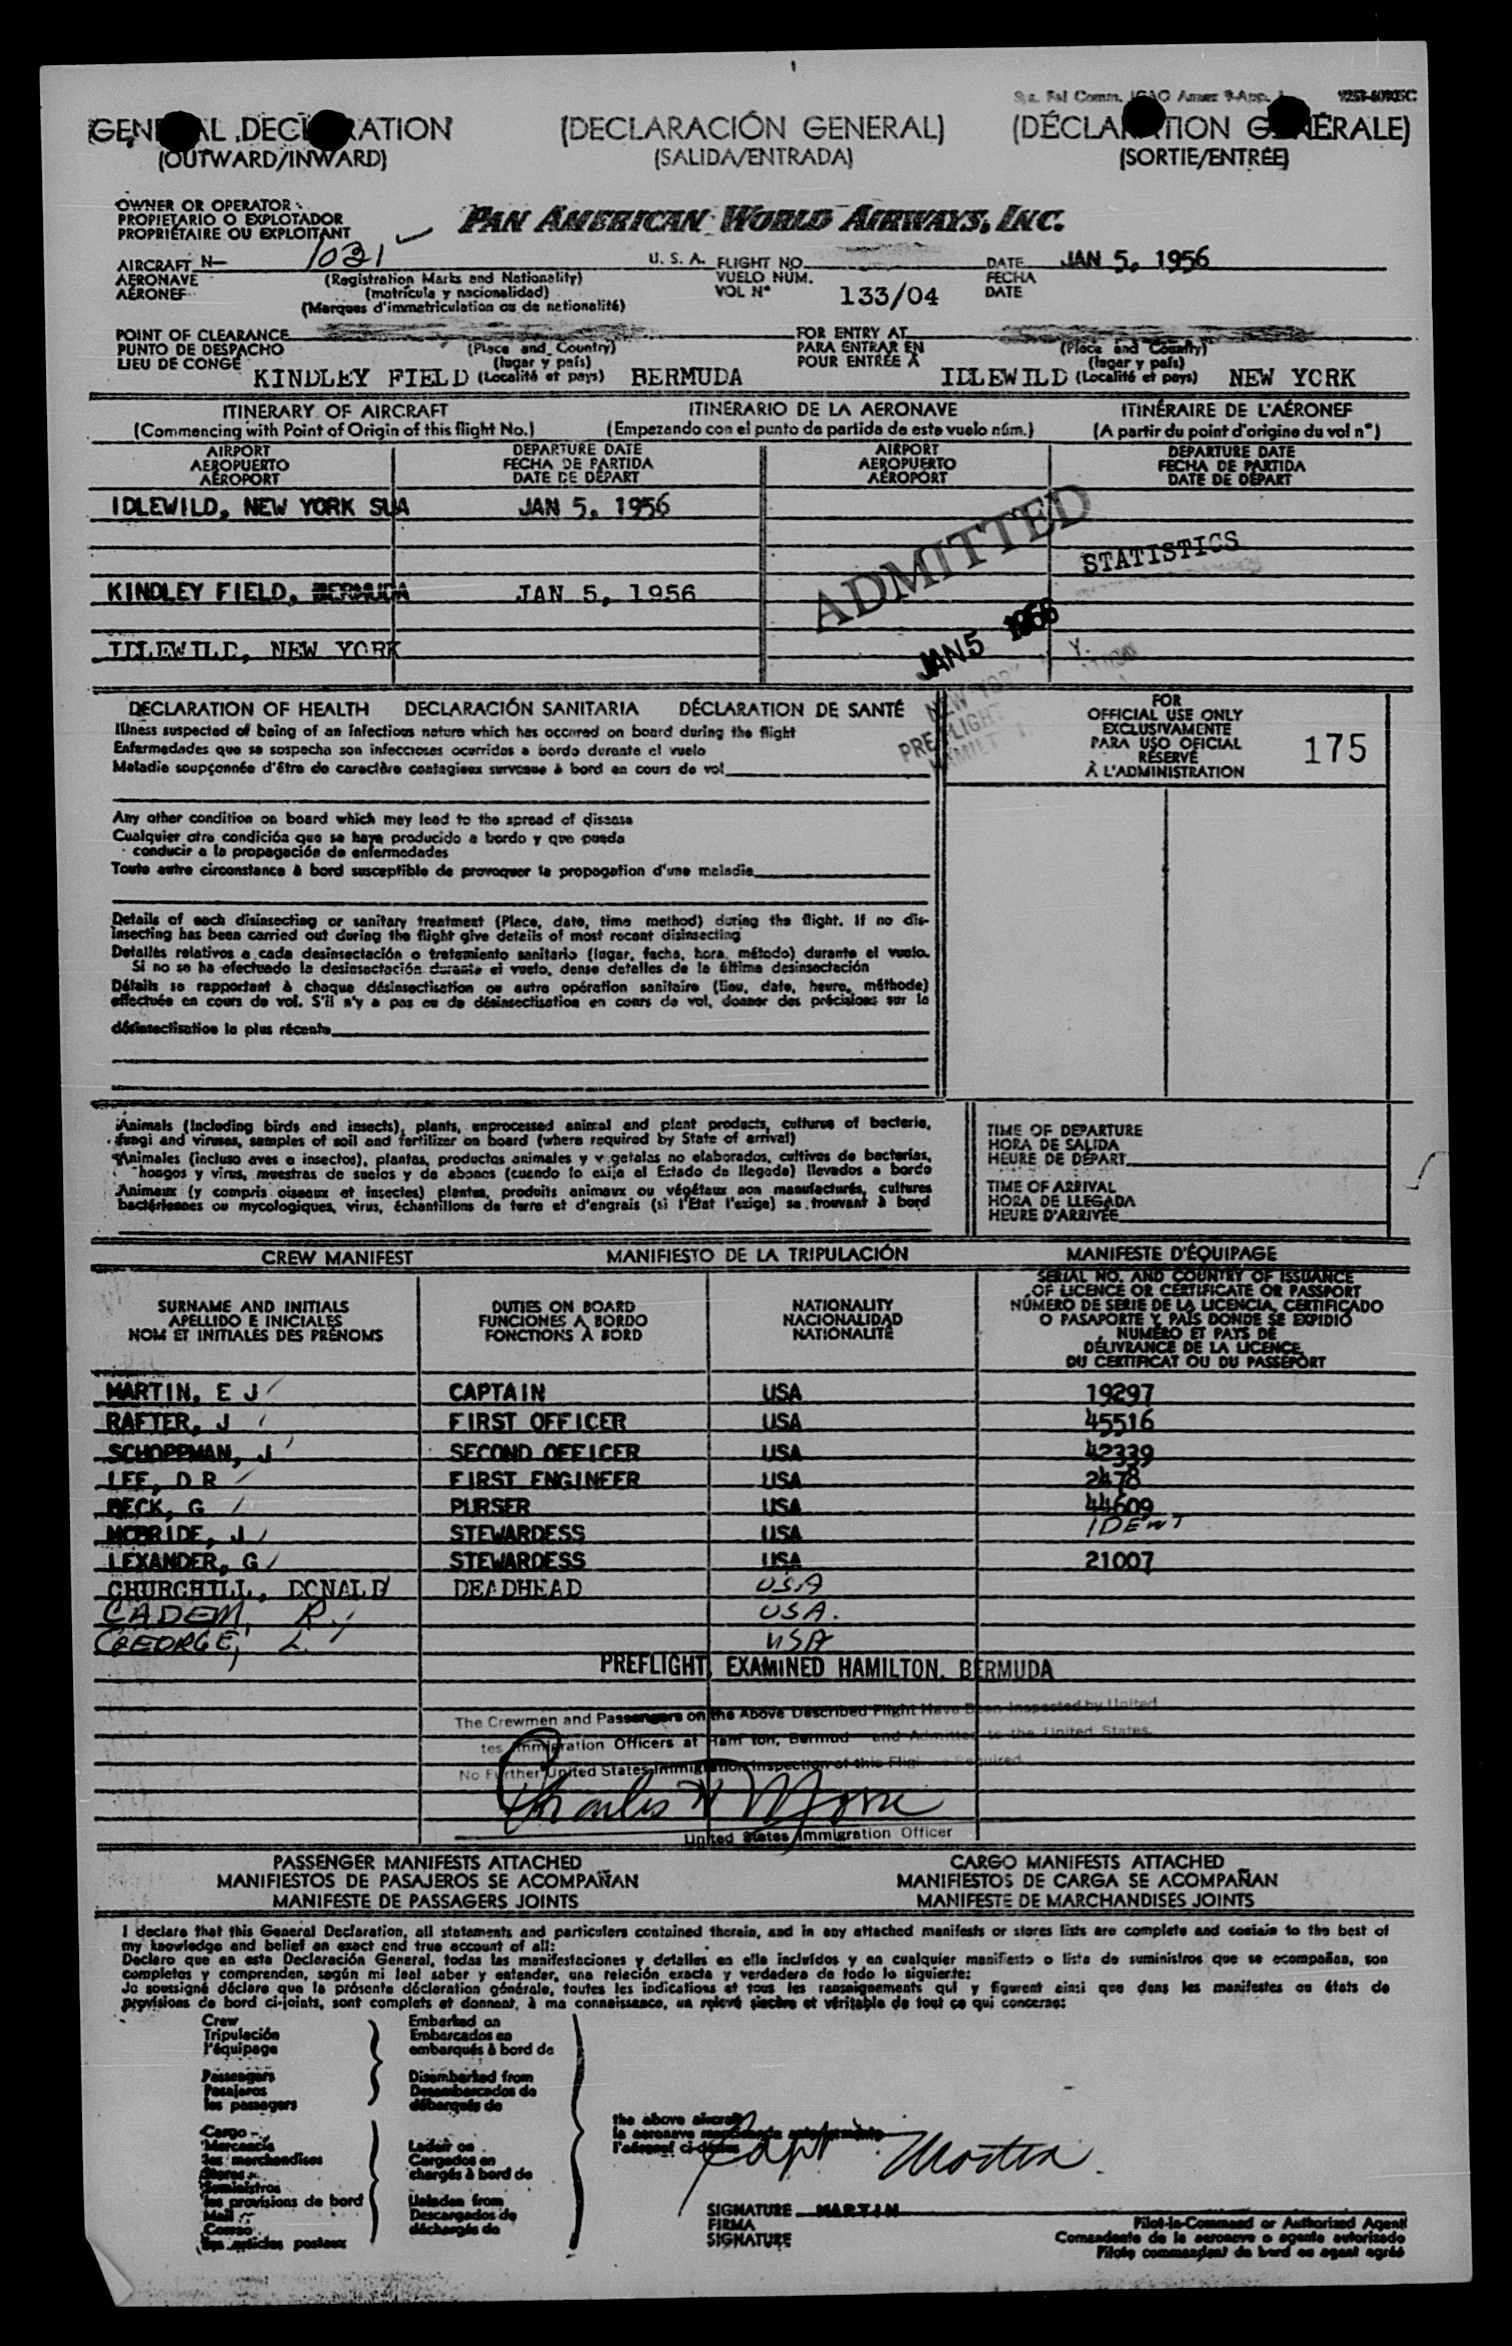 GENERAL DECLARATION (DECLARACIÓN GENERAL) (DÉCLARATION GÉNÉRALE)
(OUTWARD/INWARD) (SALIDA/ENTRADA) (SORTIE/ENTRÉE)
OWNER OR OPERATOR
PROPIETARIO O EXPLOTADOR
PROPRIÉTAIRE OU EXPLOITANT
PAN AMERICAN WORLD AIRWAYS, INC.
AIRCRAFT N- 1031 U. S. A. FLIGHT NO. DATE JAN 5, 1956
AERONAVE (Registration Marks and Nationality) VUELO NUM. FECHA
AÉRONEF (matrícula y nacionalidad) VOL N° 133/04 DATE
(Marques d'immatriculation ou de nationalité)
POINT OF CLEARANCE FOR ENTRY AT
PUNTO DE DESPACHO (Place and Country) PARA ENTRAR EN (Place and Country)
LIEU DE CONGÉ (lugar y país) POUR ENTRÉE À (lugar y país)
KINDLEY FIELD (Localité et pays) BERMUDA IDLEWILD (Localité et pays) NEW YORK
ITINERARY OF AIRCRAFT ITINERARIO DE LA AERONAVE ITINÉRAIRE DE L'AÉRONEF
(Commencing with Point of Origin of this flight No.) (Empezando con el punto de partida de este vuelo núm.) (A partir du point d'origine du vol n°)
AIRPORT DEPARTURE DATE AIRPORT DEPARTURE DATE
AEROPUERTO FECHA DE PARTIDA AEROPUERTO FECHA DE PARTIDA
AÉROPORT DATE DE DÉPART AÉROPORT DATE DE DÉPART
IDLEWILD, NEW YORK SUA JAN 5, 1956
ADMITTED
STATISTICS
KINDLEY FIELD, BERMUDA JAN 5, 1956
JAN 5 1956
IDLEWILD, NEW YORK
NEW YORK
PREFLIGHT
DECLARATION OF HEALTH DECLARACIÓN SANITARIA DÉCLARATION DE SANTÉ
Illness suspected of being of an infectious nature which has occured on board during the flight
Enfermedades que se sospecha son infecciosas ocurridas a bordo durante el vuelo
Maladie soupçonnée d'être de caractère contagieux survenue à bord en cours de vol
FOR
OFFICIAL USE ONLY
EXCLUSIVAMENTE
PARA USO OFICIAL
RÉSERVÉ
À L'ADMINISTRATION
175
Any other condition on board which may lead to the spread of disease
Cualquier otra condición que se haya producido a bordo y que pueda
conducir a la propagación de enfermedades
Toute autre circonstance à bord susceptible de provoquer la propagation d'une maladie
Details of each disinsecting or sanitary treatment (Place, date, time method) during the flight. If no dis-
insecting has been carried out during the flight give details of most recent disinsecting
Detalles relativos a cada desinsectación o tratamiento sanitario (lugar, fecha, hora, método) durante el vuelo.
Si no se ha efectuado la desinsectación durante el vuelo, dense detalles de la última desinsectación
Détails se rapportant à chaque désinsectisation ou autre opération sanitaire (lieu, date, heure, méthode)
effectuée en cours de vol. S'il n'y a pas eu de désinsectisation en cours de vol, donner des précisions sur la
désinsectisation la plus récente
Animals (Including birds and insects), plants, unprocessed animal and plant products, cultures of bacteria,
fungi and viruses, samples of soil and fertilizer on board (where required by State of arrival)
Animales (incluso aves e insectos), plantas, productos animales y vegetales no elaborados, cultivos de bacterias,
hongos y virus, muestras de suelos y de abonos (cuando lo exija el Estado de llegada) llevados a bordo
Animaux (y compris oiseaux et insectes) plantes, produits animaux ou végétaux non manufacturés, cultures
bactériennes ou mycologiques, virus, échantillons de terre et d'engrais (si l'État l'exige) se trouvant à bord
TIME OF DEPARTURE
HORA DE SALIDA
HEURE DE DÉPART
TIME OF ARRIVAL
HORA DE LLEGADA
HEURE D'ARRIVÉE
CREW MANIFEST MANIFIESTO DE LA TRIPULACIÓN MANIFESTE D'ÉQUIPAGE
SURNAME AND INITIALS
APELLIDO E INICIALES
NOM ET INITIALES DES PRÉNOMS
DUTIES ON BOARD
FUNCIONES A BORDO
FONCTIONS À BORD
NATIONALITY
NACIONALIDAD
NATIONALITÉ
SERIAL NO. AND COUNTRY OF ISSUANCE
OF LICENCE OR CERTIFICATE OR PASSPORT
NÚMERO DE SERIE DE LA LICENCIA, CERTIFICADO
O PASAPORTE Y PAÍS DONDE SE EXPIDIÓ
NUMÉRO ET PAYS DE
DÉLIVRANCE DE LA LICENCE,
DU CERTIFICAT OU DU PASSEPORT
MARTIN, E J CAPTAIN USA 19297
RAFTER, J FIRST OFFICER USA 45516
SCHOPPMAN, J SECOND OFFICER USA 42339
LEE, D R FIRST ENGINEER USA 2478
BECK, G PURSER USA 44609
MCBRIDE, J STEWARDESS USA IDENT
LEXANDER, G STEWARDESS USA 21007
CHURCHILL, DONALD DEADHEAD USA
CADEM, R. USA.
GEORGE, L. USA
PREFLIGHT EXAMINED HAMILTON, BERMUDA
The Crewmen and Passengers on the Above Described Flight Have Been Inspected by United
tes Immigration Officers at Ham ton, Bermud and Admitted to the United States.
No Further United States Immigration Inspection of this Flig Required
Charles W Morse
United States Immigration Officer
PASSENGER MANIFESTS ATTACHED CARGO MANIFESTS ATTACHED
MANIFIESTOS DE PASAJEROS SE ACOMPAÑAN MANIFIESTOS DE CARGA SE ACOMPAÑAN
MANIFESTE DE PASSAGERS JOINTS MANIFESTE DE MARCHANDISES JOINTS
I declare that this General Declaration, all statements and particulars contained therein, and in any attached manifests or stores lists are complete and contain to the best of
my knowledge and belief an exact and true account of all:
Declaro que en esta Declaración General, todas las manifestaciones y detalles en ella incluídos y en cualquier manifiesto o lista de suministros que se acompañan, son
completos y comprenden, según mi leal saber y entender, una relación exacta y verdadera de todo lo siguiente:
Je soussigné déclare que la présente déclaration générale, toutes les indications et tous les renseignements qui y figurent ainsi que dans les manifestes ou états de
provisions de bord ci-joints, sont complets et donnent, à ma connaissance, un relevé sincère et véritable de tout ce qui concerne:
Crew Embarked on
Tripulación Embarcados en
l'équipage embarqués à bord de
Passengers Disembarked from
Pasajeros Desembarcados de
les passagers débarqués de
the above aircraft
la aeronave mencionada anteriormente
l'aéronef ci-dessus
Cargo
Mercancía Laden on
les marchandises Cargados en
Stores chargés à bord de
Suministros
les provisions de bord Unladen from
Mail Descargados de
Correo déchargés de
les articles postaux
Capt Martin
SIGNATURE MARTIN
FIRMA
SIGNATURE
Pilot-in-Command or Authorized Agent
Comandante de la aeronave o agente autorizado
Pilote commandant de bord ou agent agréé